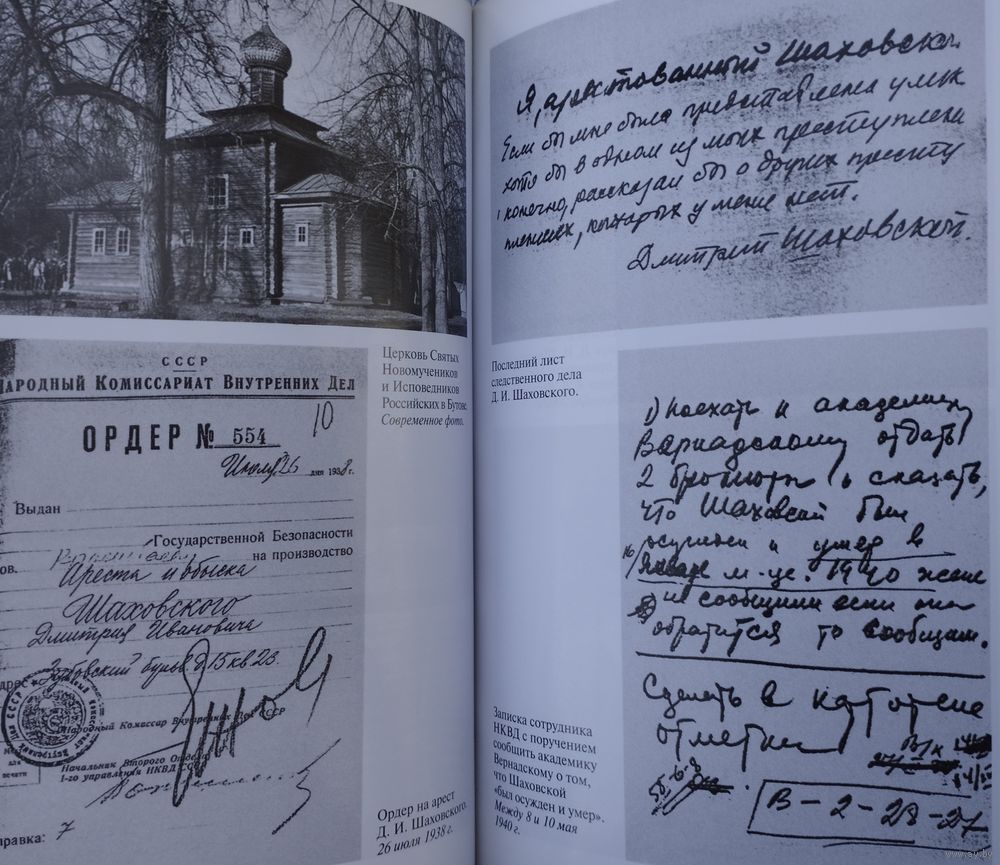 Церковь Святых
Новомучеников
и Исповедников
Российских в Бутове.
Современное фото.
СССР
НАРОДНЫЙ КОМИССАРИАТ ВНУТРЕННИХ ДЕЛ
10
ОРДЕР № 554
Июля 26 дня 1938 г.
Выдан
Государственной Безопасности
ов. на производство
Ареста и обыска
Шаховского
Дмитрия Ивановича
дрес Зубовский бульв. д 15 кв 23.
Народный Комиссар Внутренних Дел СССР
Начальник Второго Отдела
1-го управления НКВД СССР
для
печати
правка: 7
Ордер на арест
Д. И. Шаховского.
26 июля 1938 г.
Я, арестованный Шаховской
Если бы мне была представлена улик
хотя бы в одном из моих преступлени
конечно, рассказал бы о других преступ
лениях, которых у меня нет.
Дмитрий Шаховской
Последний лист
следственного дела
Д. И. Шаховского.
1) поехать к академику
Вернадскому отдать
2 брошюры и сказать,
что Шаховской был
осужден и умер в
Январе м-це. 1940 жене
не сообщили если она
обратится то сообщим.
Сделать в картотеке
отметки
В-2-28-27
Записка сотрудника
НКВД с поручением
сообщить академику
Вернадскому о том,
что Шаховской
«был осужден и умер».
Между 8 и 10 мая
1940 г.
www.ay.by